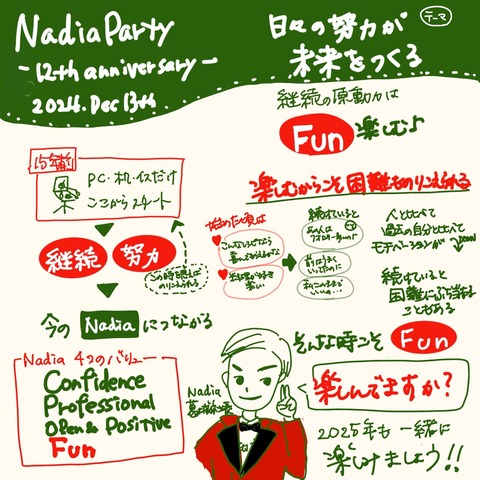 NadiaParty
-12th anniversary-
2024. Dec 13th
テーマ
日々の努力が
未来をつくる
継続の原動力は
Fun 楽しむ♪
楽しむからこそ困難ものりこえられる
15年前
PC・机・イスだけ
ここからスタート
継続 努力
この時期思えば
のりこえられる
今の Nadia につながる
Nadia 4つのバリュー
Confidence
Professional
Open & Positive
Fun
始めた頃は
続けていると
人と比べて
過去の自分と比べて
モチベーションが down
続けていると
困難にぶち当たる
こともある
そんな時こそ Fun
楽しんでますか?
Nadia
2025年も一緒に
楽しみましょう!!